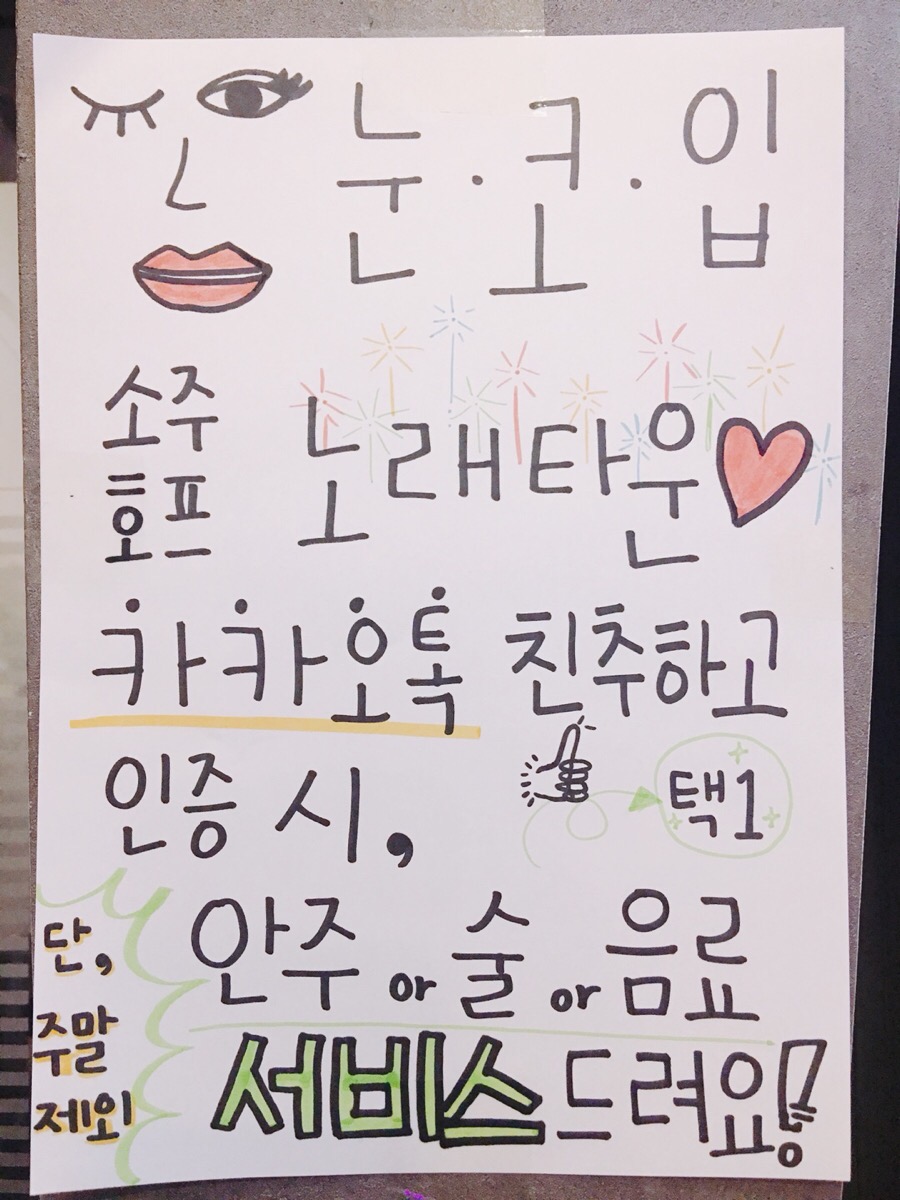 눈·코·입
소주
호프
노래타운
카카오톡 친추하고
인증 시,
택1
안주 or 술 or 음료
서비스 드려요!
단,
주말
제외